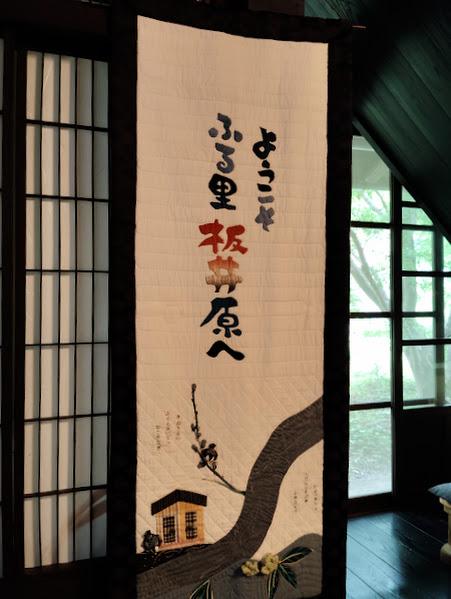 ようこそ
ふる里板井原へ